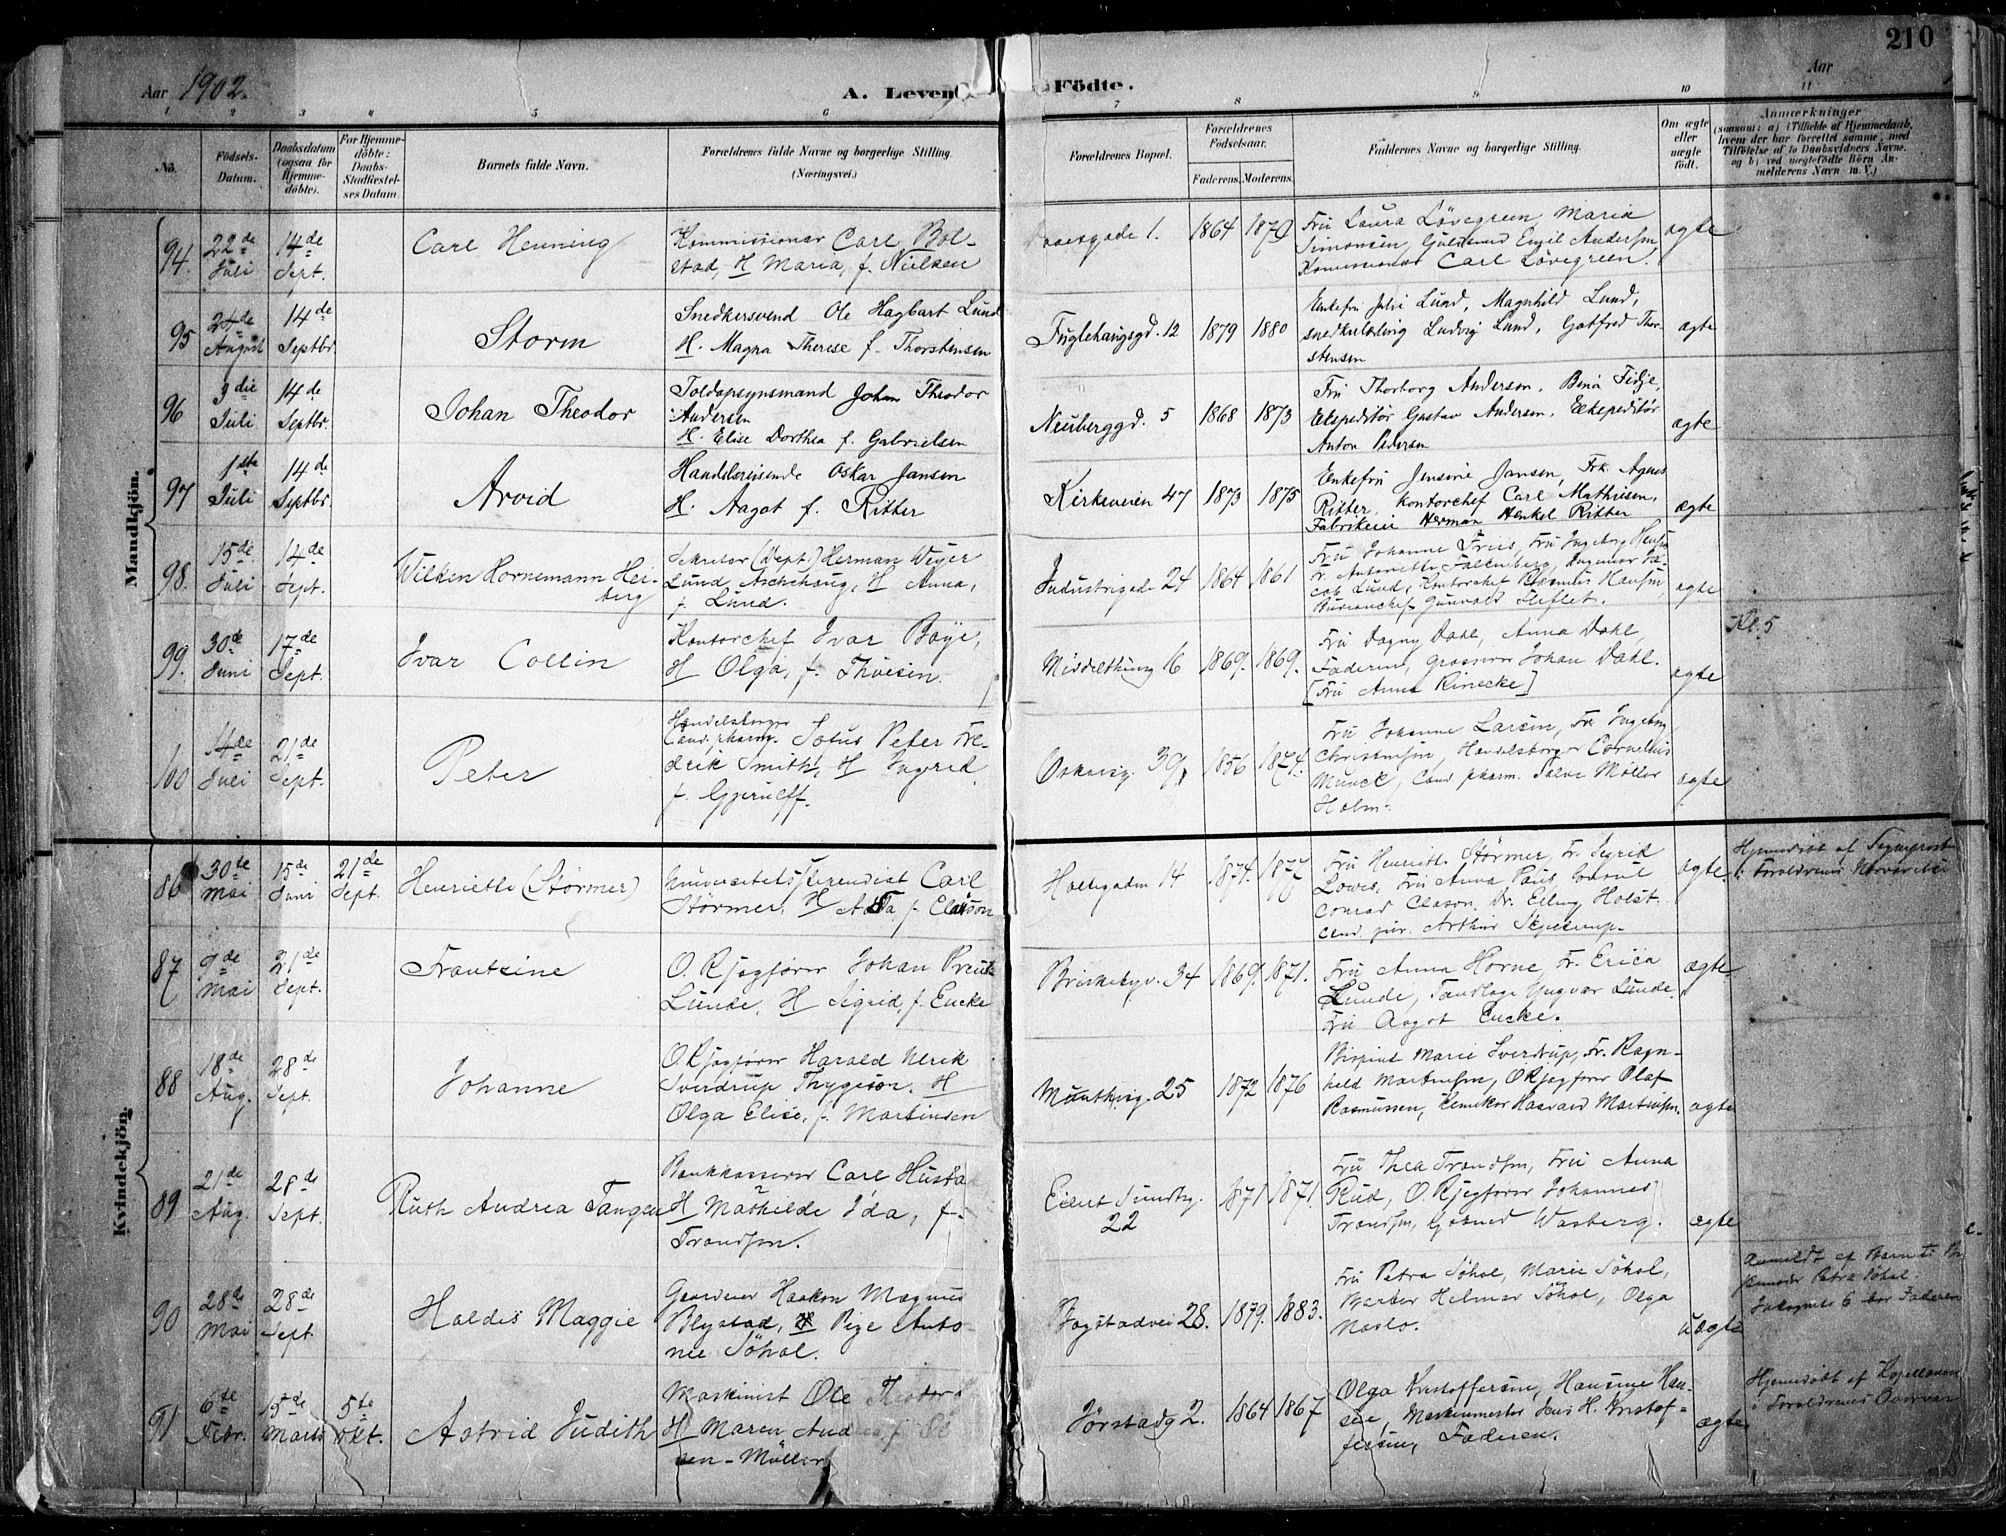 210
Aar 1902.
A. Leven
Födte.
Aar
1 2 3 4 5 6 7 8 9 10 11
No.
Födsels-Datum.
Daabsdatum (ogsaa for Hjemme-döbte).
For Hjemme-döbte: Daabs-Stadfæstel-ses Datum.
Barnets fulde Navn.
Forældrenes fulde Navne og borgerlige Stilling.
(Næringsvei.)
Forældrenes Bopæl.
Forældrenes Födselsaar.
Faderens. Moderens.
Faddernes Navne og borgerlige Stilling.
Om ægte eller uægte födt.
Anmærkninger
(saasom: a) i Tilfælde af Hjemmedaab,
hvem der har forrettet samme, med
Tilföielse af to Daabsvidners Navne.
og b) ved uægtefödte Börn An-
melderens Navn m. V.)
Mandkjön.
94. 22de Juli 14de Sept. Carl Henning
Kommissionær Carl Bol-
stad, H Maria, f. Nielsen
1. 1864 1870
Fru Laura Lövegreen, Maria
Simonsen, Guldsmed Emil Andersen,
Carl Lövegreen.
ægte
95 August 14de Septbr. Storm
Snedkersvend Ole Hagbart Lund
H. Magna Therese f. Thorstensen
Fuglehaugsgd. 12 1879 1880
Enkefru Julie Lund, Magnhild Lund,
Ludvig Lund, Gotfred Thor-
stensen
ægte
96 3die Juli 14de Septbr. Johan Theodor
Toldopsynsmand John Theodor
Andersen
H. Elise Dorthea f. Gabrielsen
Neuberggd. 5 1868 1873
Fru Thorborg Andersen,
Ekspeditör Gustav Andersen, Ekspeditör
Anton Pedersen
ægte
97 1ste Juli 14de Septbr. Arvid
Handelsreisende Oskar Jansen
H. Aagot f. Ritter
Kirkeveien 47 1873 1875
Enkefru Jensine Jansen, Frk. Agnes
Ritter, Kontorchef Carl Mathisen,
Herman Henkel Ritter
ægte
98. 15de Juli 14de Sept. Wilken Hornemann Hei-
berg
(Dept) Herman Weyer
Lund, Aschehoug, H Anna,
f. Lund.
Industrigade 24 1864 1861
Fru Johanne Friis, Fru Ingeborg
Falkenberg, Ingeniör Ja-
cob Lund, Kontorchef Rasmus Hansen,
Gunvald
ægte
99. 30de Juni 17de Sept. Ivar Collin
Kontorchef Ivar Boye,
H Olga, f. Thuesen.
Middelthunsg 16 1869. 1869.
Fru Dagny Dahl, Anna Dahl,
Faderen, Johan Dahl.
[Fru Anna Rinecke]
ægte
Kl. 5
100 14de Juli 21de Sept. Peter
Handelsborger
Cand. pharm. Sofus Peter Fre-
drik Smith, H Ingrid
f.
Oskarsg. 39, 1856 1874.
Fru Johanne Larsen, Fr. Ingeborg
Christensen, Handelsborger Cornelius
Munck, Cand pharm. Møller
Holm.
ægte
Kvindekjön.
86 30te Mai 15de Juni 21de Sept. Henriette (Størmer)
Universitetsstipendiat Carl
Størmer, H f. Clauson
Holtegaden 14 1874. 1877
Fru Henriette Størmer, Fr. Sigrid
Fru Anna Paus, Consul
Conrad Clason, Dr. Elling Holst.
cand. jur. Arthur Skjelderup.
ægte.
Hjemmedöbt af
i Forældrenes
87 9de Mai 21de Sept. Frantzine
O. R. sagfører Johan
Lunde, H Sigrid, f. Encke
Briskebyv. 34 1869. 1871.
Fru Anna Horne, Fr. Erica
Lunde, Tandlæge Yngvar Lunde.
Fru Aagot Encke.
ægte
88 18de Aug. 28de Sept. Johanne
O. R. sagfører Harald Ulrik
Sverdrup Thygeson. H
Olga Elise, f. Martinsen
Munthesg. 25 1872 1876
Bispinde Marie Sverdrup, Fr. Ragn-
hild Martinsen, O R sagfører Olaf
Rasmussen, Kemiker Haavard Martinsen.
ægte
89 21de Aug. 28de Sept. Ruth Andrea Tangen
Bankkasserer Carl Hustad
H Mathilde Ida, f.
Trondsen.
Eilert Sundtsg. 22 1871 1871.
Fru Thea Trondsen, Fru Anna
Rud, O. R sagfører Johannes
Trondsen, Wasberg.
ægte
90 28de Mai 28de Sept. Haldis Maggie
Haakon Magnus
Blystad, Pige Anto-
nie Söhol.
Bogstadvei 28. 1879. 1883.
Fru Petra Söhol, Marie Söhol,
Helmer Söhol, Olga
Uægte
Anmeldt af Barnets
Petra Söhol.
6 bor Faderen
91 6te Febr. 15de Marts 5te Okt. Astrid Judith
Maskinist Ole Theodor
H Maren
sen-Möller
Jörstadg 2. 1864 1867
Olga Kristoffersen, Hansine Han-
sen, Maskinmester Jens H. Kristof-
fersen, Faderen.
ægte
Hjemmedöbt af Kapellanen
i Forældrenes